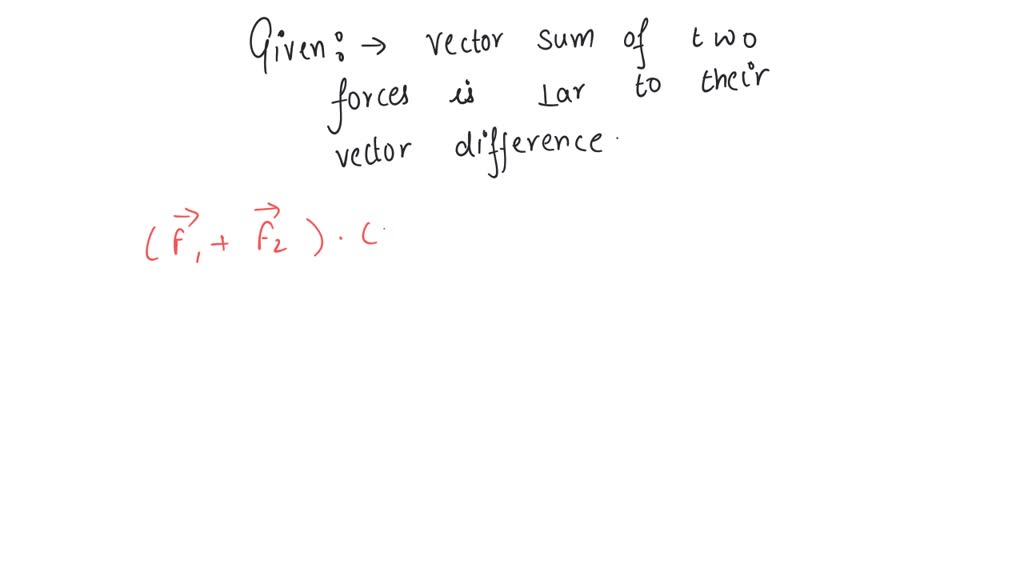 Given: → vector sum of two
forces is ⊥ar to their
vector difference.
(F⃗₁ + F⃗₂) · (